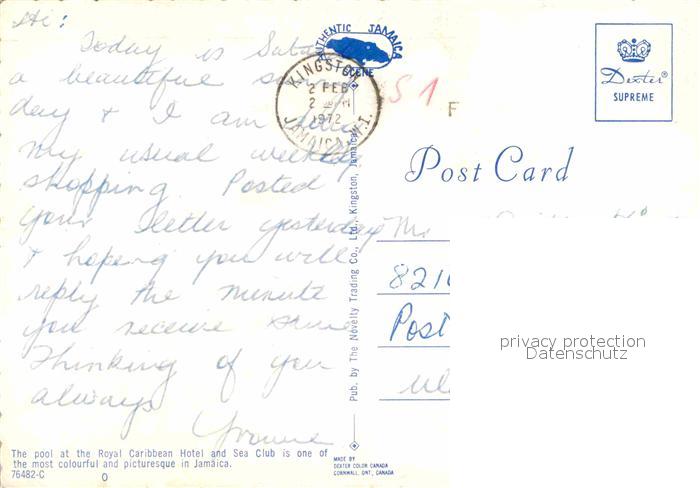 Hi:
Today is
a beautiful
day & I am doing
my usual weekly
shopping. Posted
your letter yesterday
& hoping you will
reply the minute
you receive same
Thinking of you
always
Yvonne
The pool at the Royal Caribbean Hotel and Sea Club is one of
the most colourful and picturesque in Jamaica.
76482-C
O
AUTHENTIC JAMAICA
SCENE
KINGSTON
2 FEB
1972
JAMAICA W.I.
S 1
F
Pub. by The Novelty Trading Co., Ltd., Kingston, Jamaica
MADE BY
DEXTER COLOR CANADA
CORNWALL, ONT., CANADA
Dexter®
SUPREME
Post Card
Mr
821
Post
privacy protection
Datenschutz